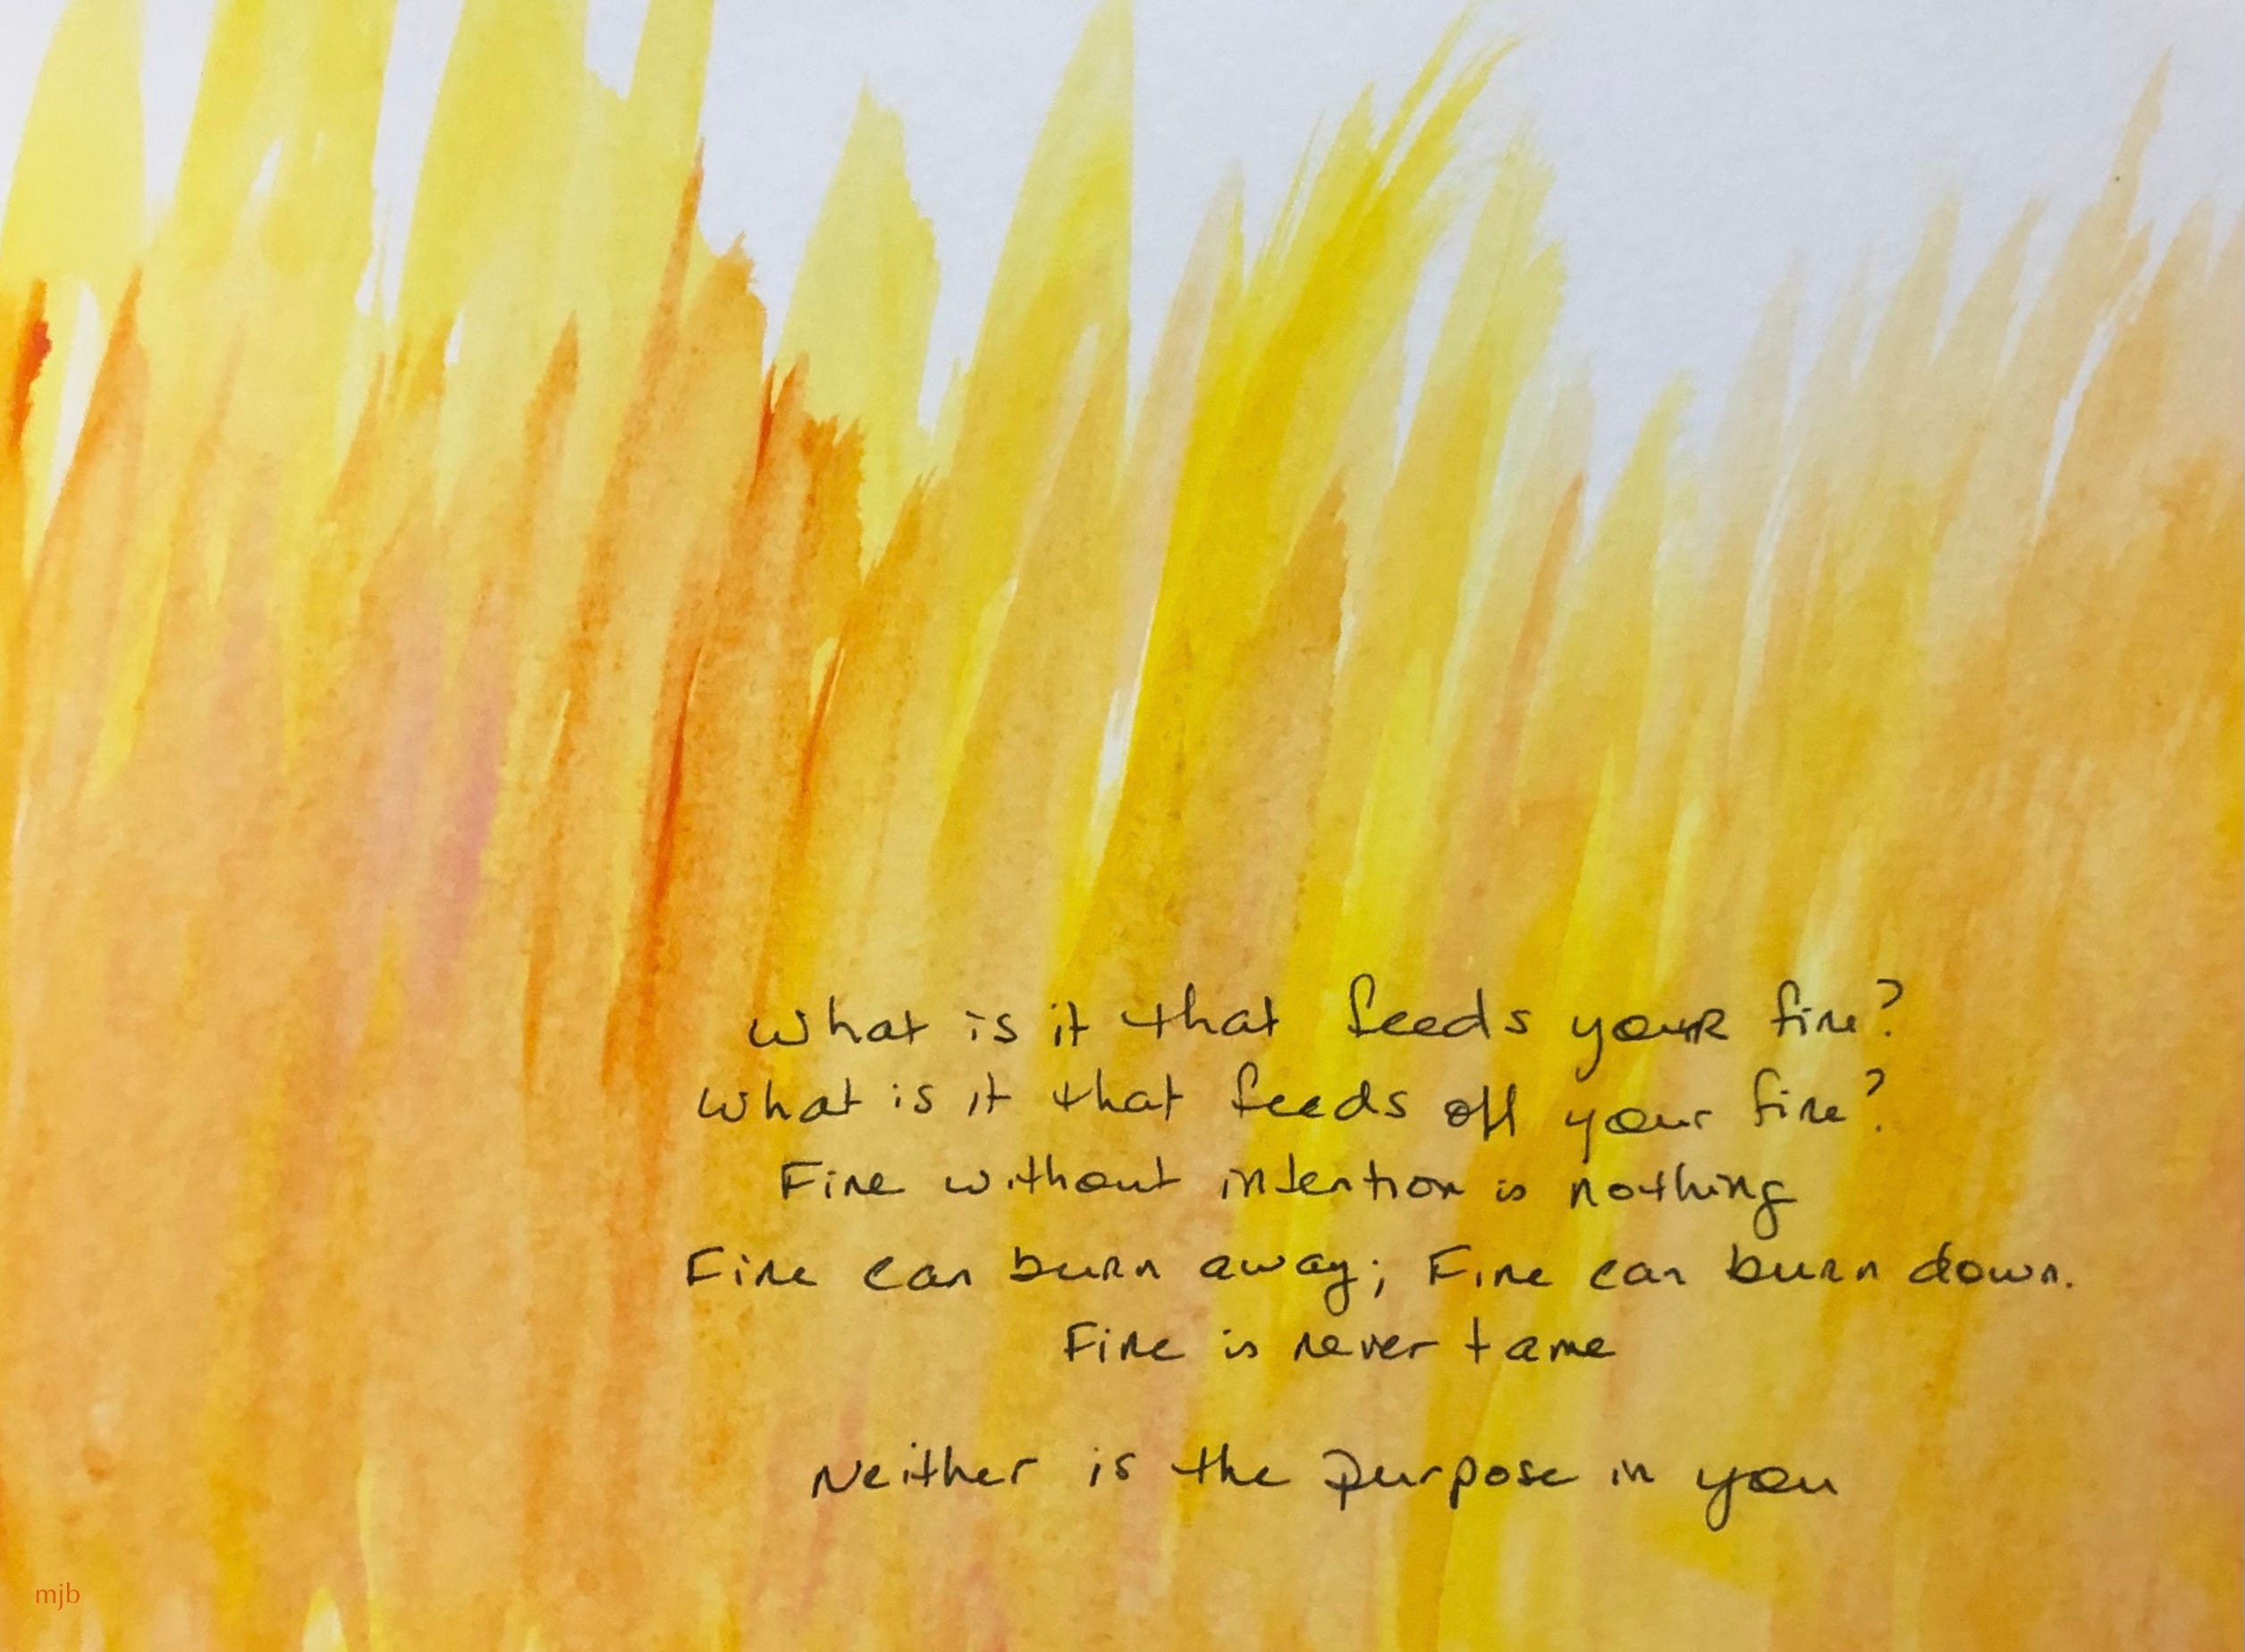 What is it that feeds your fire?
What is it that feeds off your fire?
Fire without intention is nothing
Fire can burn away; Fire can burn down.
Fire is never tame
Neither is the purpose in you
mjb